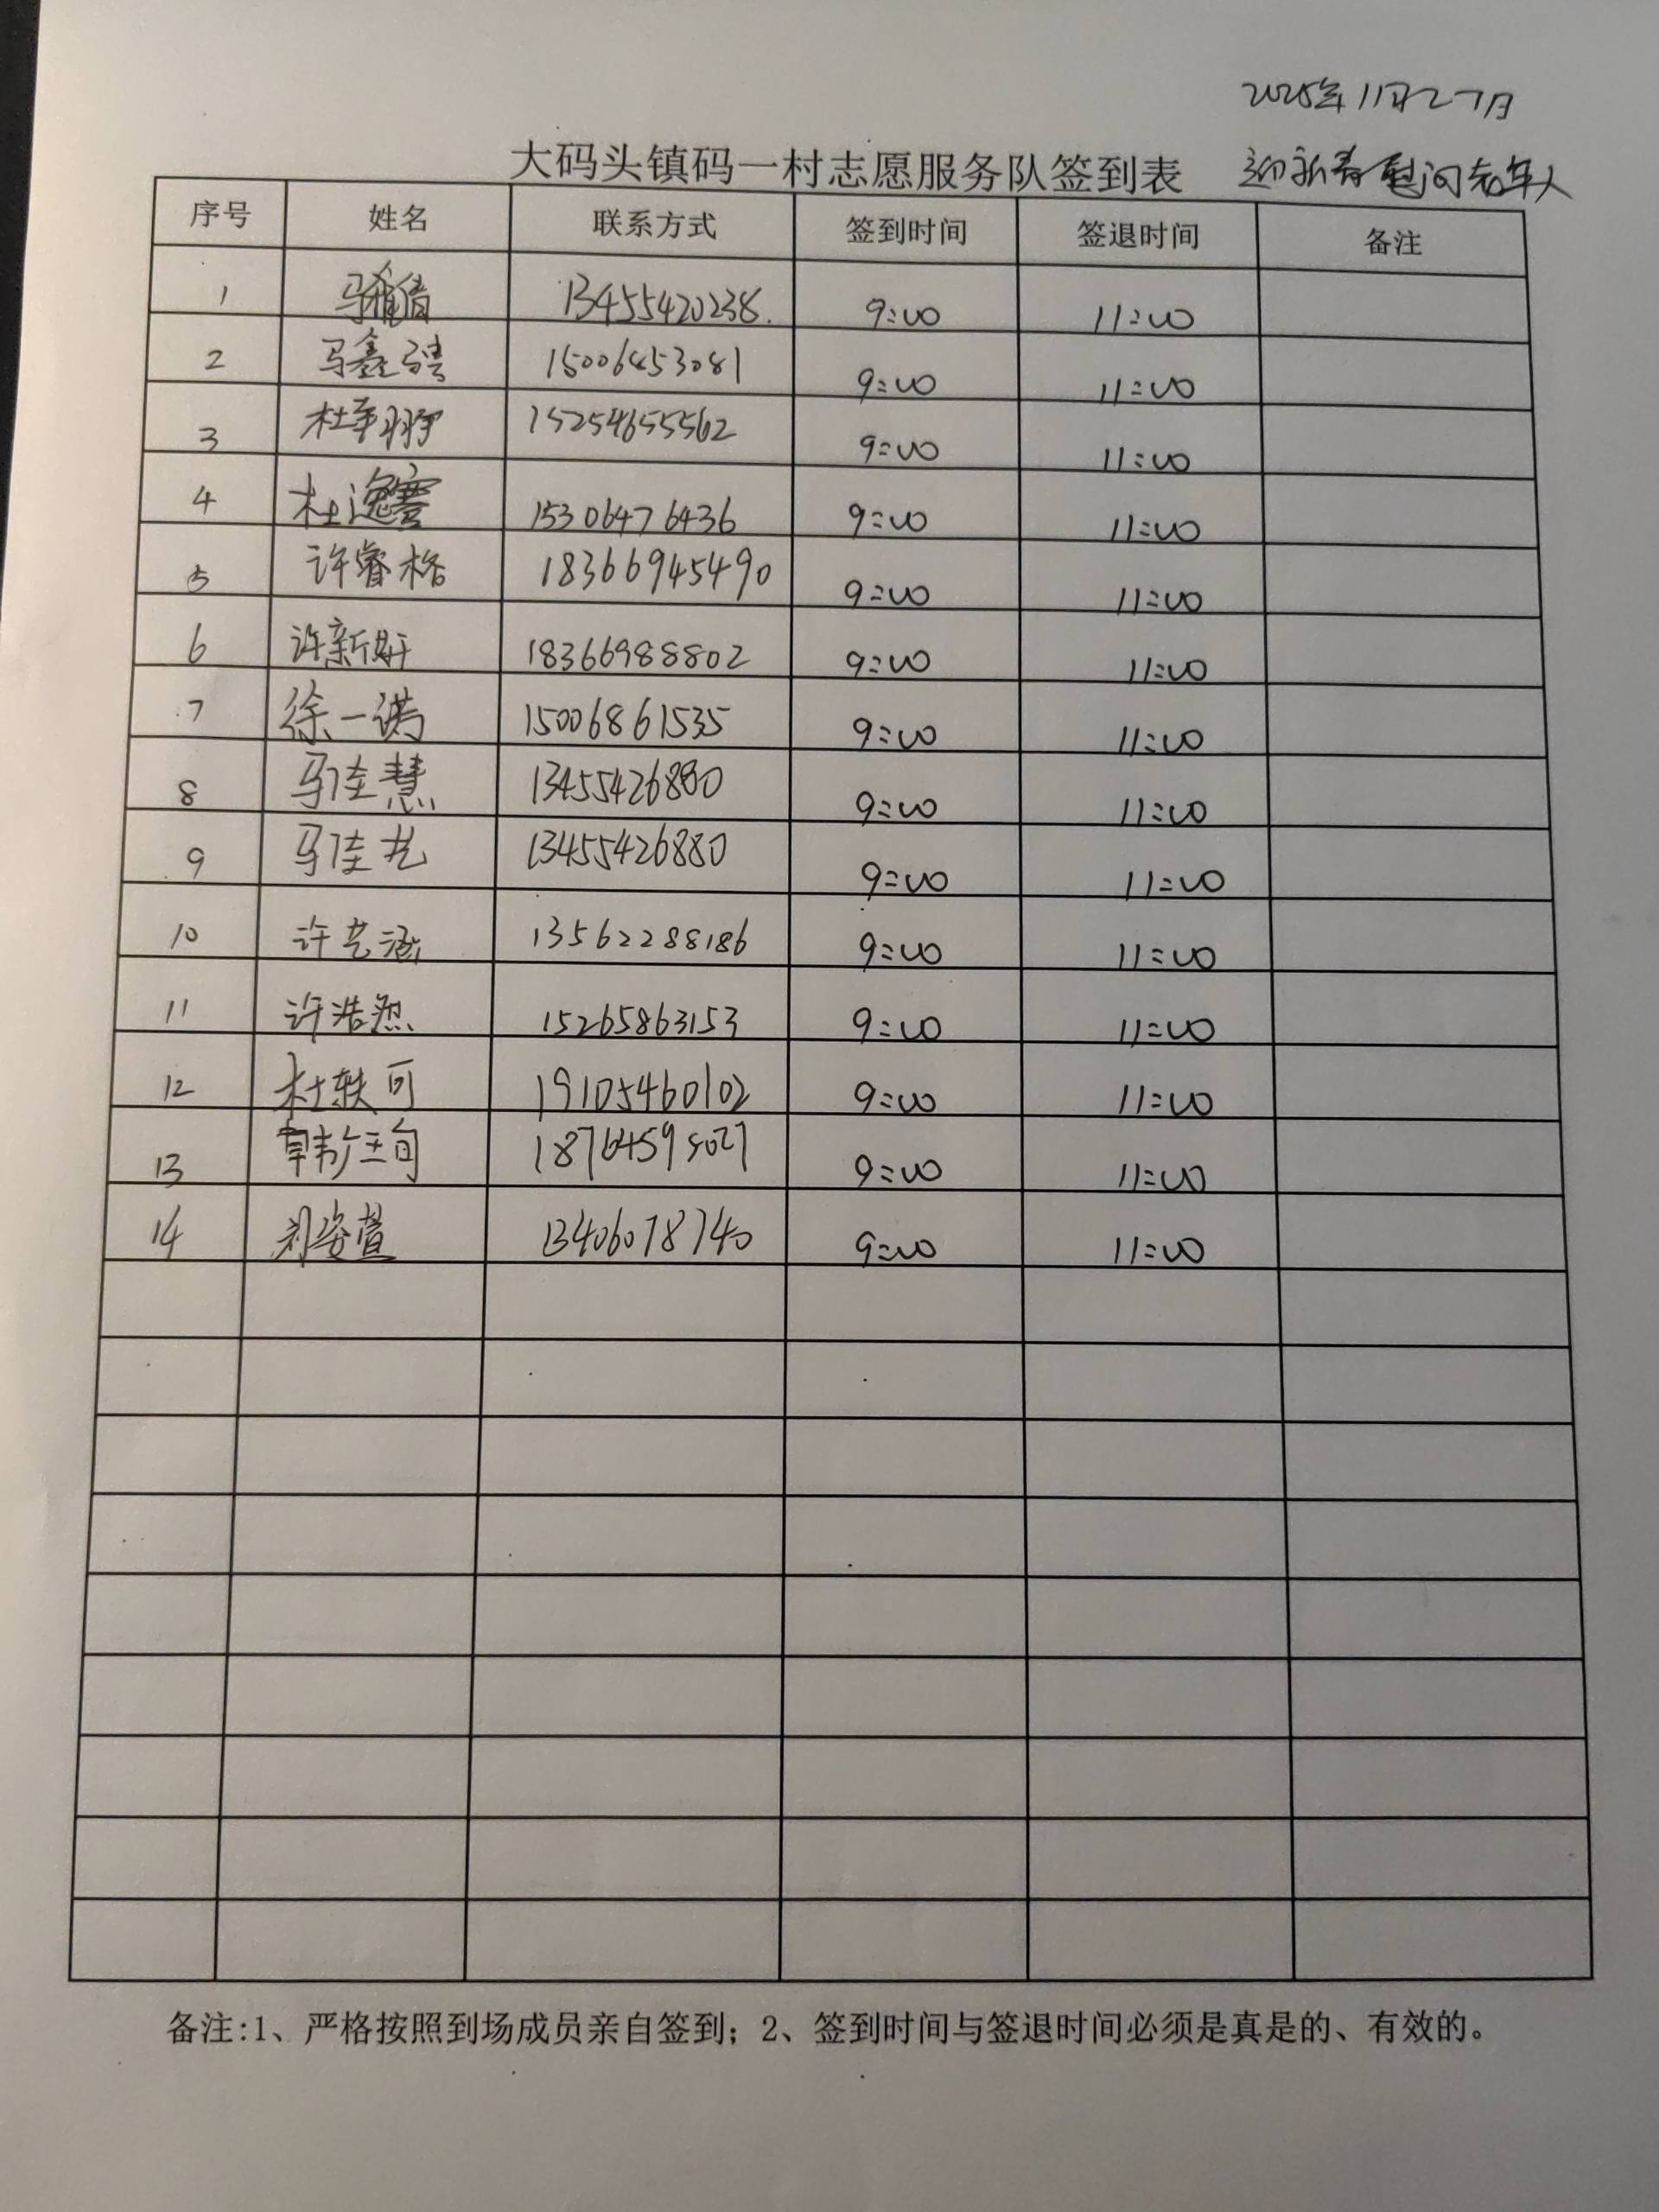 2025年11月27日
大码头镇码一村志愿服务队签到表 迎新春慰问老年人
序号 姓名 联系方式 签到时间 签退时间 备注
1 13455420238 9:00 11:00
2 马鑫骋 15006453081 9:00 11:00
3 15254655562 9:00 11:00
4 杜逸骞 15306476436 9:00 11:00
5 许睿格 18366945490 9:00 11:00
6 许新妍 18366988802 9:00 11:00
7 徐一诺 15006861535 9:00 11:00
8 马佳慧 13455426880 9:00 11:00
9 马佳艺 13455426880 9:00 11:00
10 许艺涵 13562288186 9:00 11:00
11 许浩然 15265863153 9:00 11:00
12 杜轶可 19105460102 9:00 11:00
13 9:00 11:00
14 刘姿萱 13406078740 9:00 11:00
备注:1、严格按照到场成员亲自签到；2、签到时间与签退时间必须是真是的、有效的。